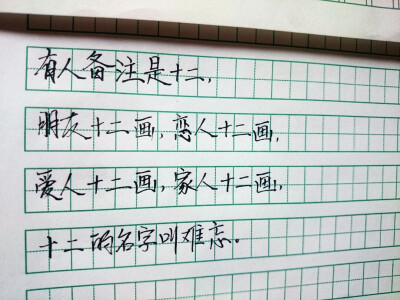 有人备注是十二，
朋友十二画，恋人十二画，
爱人十二画，家人十二画，
十二的名字叫难忘。